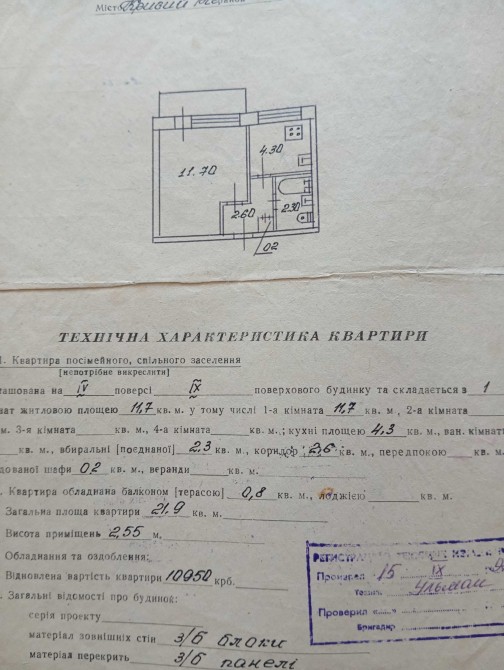 Місто Кривий
11.70
4.30
2.60
2.30
02
ТЕХНІЧНА ХАРАКТЕРИСТИКА КВАРТИРИ
1. Квартира посімейного, спільного заселення
[непотрібне викреслити]
ташована на IV поверсі IX поверхового будинку та складається з 1
нат житловою площею 11,7 кв. м. у тому числі 1-а кімната 11,7 кв. м, 2-а кімната
м. 3-я кімната кв. м., 4-а кімната кв. м.; кухні площею 4,3 кв. м., ван. кімнати
кв. м., вбиральні [поєднаної] 2,3 кв. м., коридор 2,6 кв. м., передпокою кв. м.
дованої шафи 0,2 кв. м., веранди кв. м.
. Квартира обладнана балконом [терасою] 0,8 кв. м., лоджією кв. м.
Загальна площа квартири 21,9 кв. м.
Висота приміщень 2,55 м.
Обладнання та оздоблення:
Відновлена вартість квартири 10950 крб.
. Загальні відомості про будинок:
серія проекту
матеріал зовнішніх стін з/б блоки
матеріал перекрить з/б панелі
Произвел 15 IX
Техник
Проверил
Бригадир